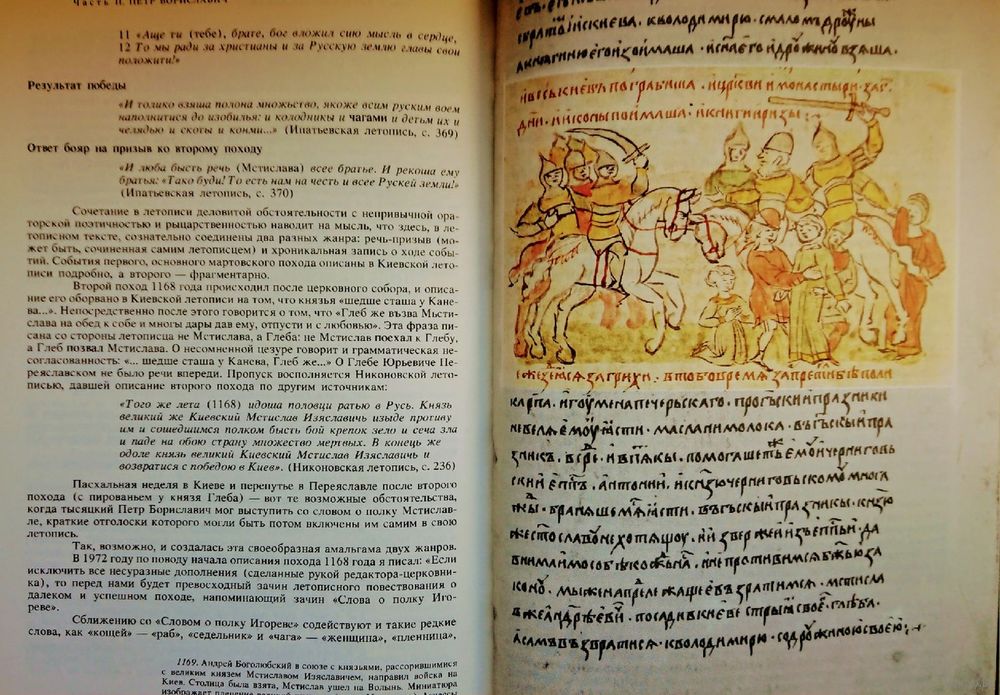 Часть II. ПЕТР БОРИСЛАВИЧ
11 «Аще ти (тебе), брате, бог вложил сию мысль в сердце,
12 То мы ради за христианы и за Русскую землю главы свои
положити!»
Результат победы
«И толико взяша полона множьство, якоже всим руским воем
наполнитися до изобилья: и колодникы и чагами и детьми их и
челядью и скоты и конми...» (Ипатьевская летопись, с. 369)
Ответ бояр на призыв ко второму походу
«И люба бысть речь (Мстислава) всее братье. И рекоша ему
братья: «Тако буди! То есть нам на честь и всее Рускей земли!»
(Ипатьевская летопись, с. 370)
Сочетание в летописи деловитой обстоятельности с непривычной ора-
торской поэтичностью и рыцарственностью наводит на мысль, что здесь, в ле-
тописном тексте, сознательно соединены два разных жанра: речь-призыв (мо-
жет быть, сочиненная самим летописцем) и хроникальная запись о ходе собы-
тий. События первого, основного мартовского похода описаны в Киевской лето-
писи подробно, а второго — фрагментарно.
Второй поход 1168 года происходил после церковного собора, и описа-
ние его оборвано в Киевской летописи на том, что князья «шедше сташа у Кане-
ва...». Непосредственно после этого говорится о том, что «Глеб же възва Мьсти-
слава на обед к собе и многы дары дав ему, отпусти и с любовью». Эта фраза пи-
сана со стороны летописца не Мстислава, а Глеба: не Мстислав поехал к Глебу,
а Глеб позвал Мстислава. О несомненной цезуре говорит и грамматическая не-
согласованность: «... шедше сташа у Канева, Глеб же...» О Глебе Юрьевиче Пе-
реяславском не было речи впереди. Пропуск восполняется Никоновской лето-
писью, давшей описание второго похода по другим источникам:
«Того же лета (1168) идоша половци ратью в Русь. Князь
великий же Киевский Мстислав Изяславичь изыде противу
им и сошедшимся полком бысть бой крепок зело и сеча зла
и паде на обою страну множество мертвых. В конець же
одоле князь великий Киевский Мстислав Изяславичь и
возвратися с победою в Киев». (Никоновская летопись, с. 236)
Пасхальная неделя в Киеве и перепутье в Переяславле после второго
похода (с пированьем у князя Глеба) — вот те возможные обстоятельства,
когда тысяцкий Петр Бориславич мог выступить со словом о полку Мстислав-
ле, краткие отголоски которого могли быть потом включены им самим в свою
летопись.
Так, возможно, и создалась эта своеобразная амальгама двух жанров.
В 1972 году по поводу начала описания похода 1168 года я писал: «Если
исключить все несуразные дополнения (сделанные рукой редактора-церковни-
ка), то перед нами будет превосходный зачин летописного повествования о
далеком и успешном походе, напоминающий зачин «Слова о полку Иго-
реве».
Сближению со «Словом о полку Игореве» содействуют и такие редкие
слова, как «кощей» — «раб», «седельник» и «чага» — «женщина», «пленница»,
1169. Андрей Боголюбский в союзе с князьями, рассорившимися
с великим князем Мстиславом Изяславичем, направил войска на
Киев. Столица была взята, Мстислав ушел на Волынь. Миниатюра
ис киева . кволодимирю . смаломъ дрꙋжины
ивьськиевъ пограбиша . ицр҃кви и монастыри .
инииконы поимаша . и книги и ризы
сеже зъдеꙗсѧ за грѣхи . вто бо времѧ запретилъ бѣ поли
карпа . игоумена печерьского . про гс҃кыꙗ праз҃ники
невелѧ емоу ꙗсти . масла ни молока . въ гс҃кыꙗ пра
зникъ . помогашетъ емоу и черниговь
скии еп҃пъ . антонии . и кнѧзю черниговьскомоу многа
жды . бранѧше мѧса ꙗсти . въ гс҃кыꙗ праз҃никы . кнѧзю
же ст҃ославоу не хотѧщоу
законоу . мы же на преде лежащее възвратимсѧ . мстисла
въ же андрѣевичь . посади въ киевѣ стрыꙗ своего глѣба .
а самъ възвратисѧ . к володимирю . содроужиною своею .